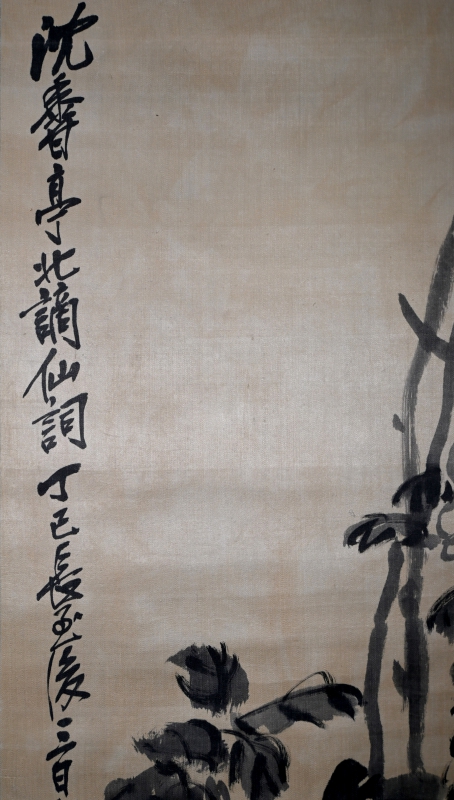 沈香亭北謫仙詞丁巳長至後三日